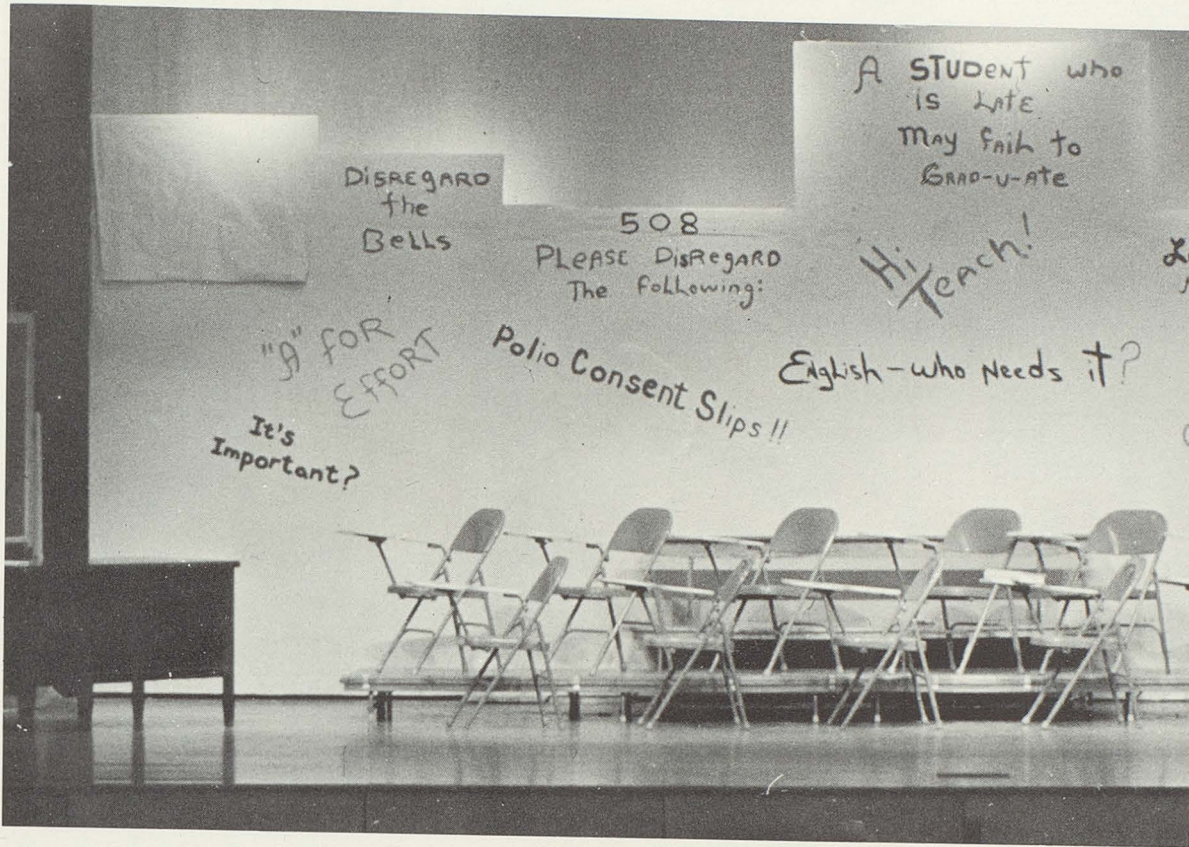 A STUDENT who
is LATE
MAY FAIL to
GRAD-U-ATE
DISREGARD
the
Bells
508
PLEASE DISREGARD
The Following:
Hi
Teach!
"A" FOR
EFFORT
Polio Consent Slips!!
ENGLISH - who Needs it?
It's
Important?